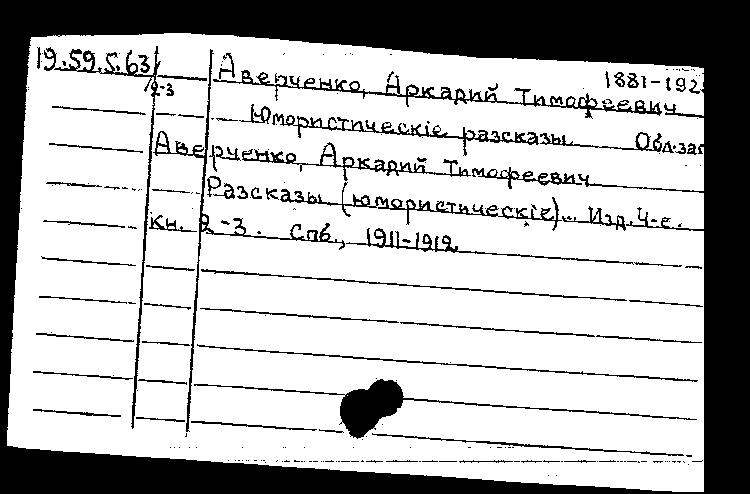 19.59.5.63
2-3
1881-192
Аверченко, Аркадий Тимофеевич
Юмористическіе разсказы. Обл. заг
Аверченко, Аркадий Тимофеевич
Разсказы (юмористическіе)... Изд. 4-е.
Кн. 2-3. Спб., 1911-1912